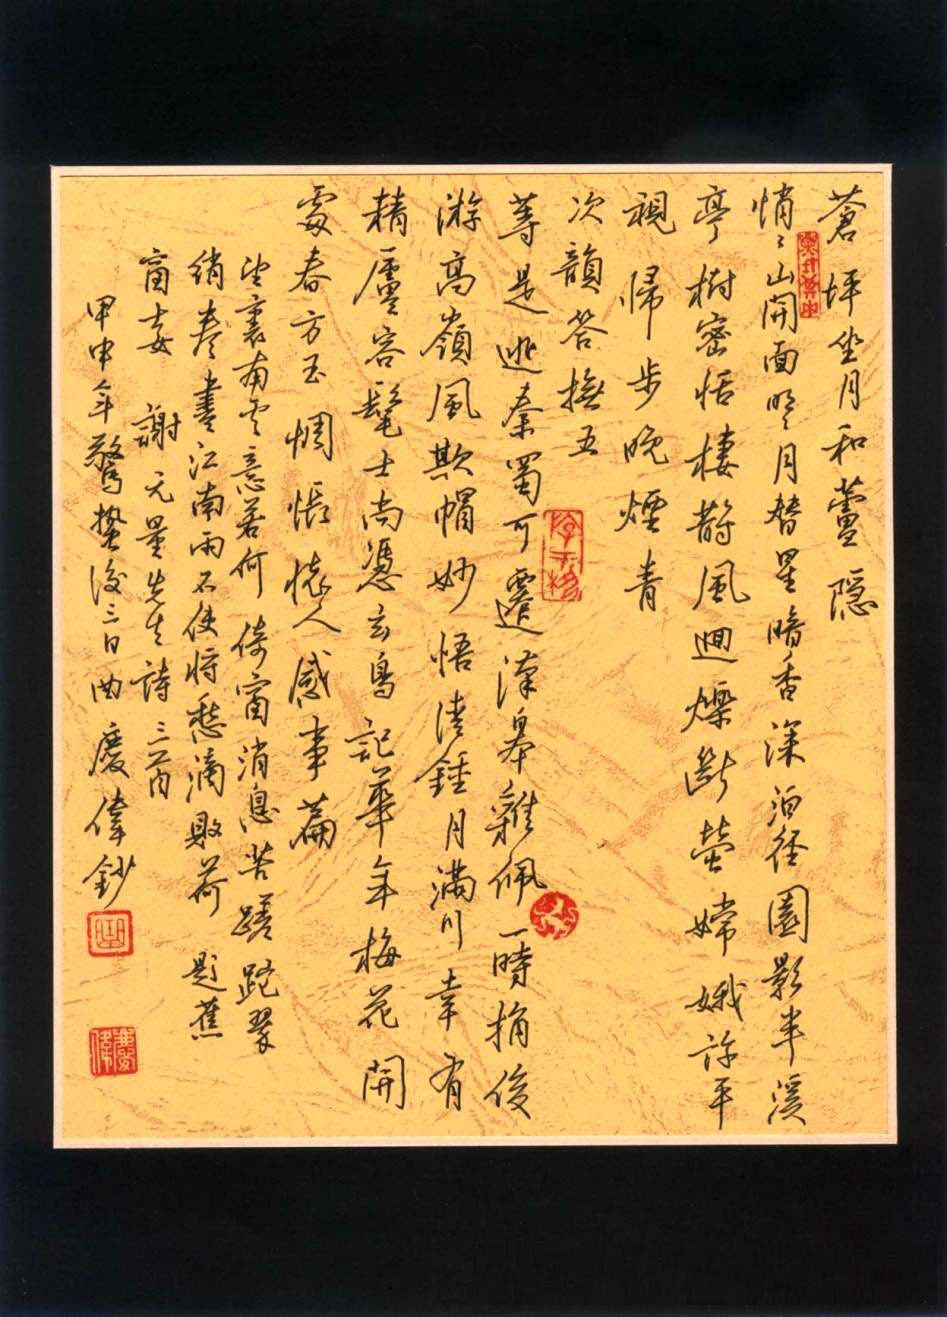 蒼坪坐月和薑隱
悄〻山開面明〻月替星暗香深泊徑園影半溪
亭樹密恬棲鵲風迴爍斷螢嫦娥許平
視歸步晚煙青
次韻答撫五
等是逃秦蜀可遷漢皋雜佩一時捐俊
游高嶺風欺帽妙悟清鍾月滿川幸有
精廬容髦士尚憑玄鳥記華年梅花開
處春方玉惆悵懷人感事篇
望裏南雲意若何倚窗消息苦蹉跎翠
綃卷盡江南雨不使將愁滴敗荷 題蕉
窗 謝元量先生詩三首
甲申年驚蟄後三日曲慶偉鈔